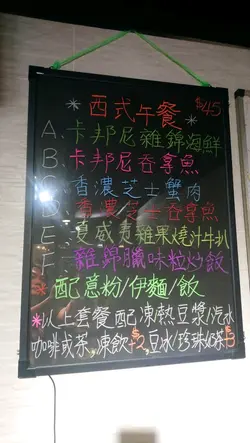 *西式午餐* $45
A. 卡邦尼雜錦海鮮
B. 卡邦尼吞拿魚
C. 香濃芝士蟹肉
D. 香濃芝士吞拿魚
E. 夏威夷雜果燒汁牛扒
F. 雜錦臘味粒炒飯
*配意粉/伊麵/飯
*以上套餐配凍熱豆漿/汽水
咖啡或茶,凍飲+$2豆冰/珍珠奶茶+$3